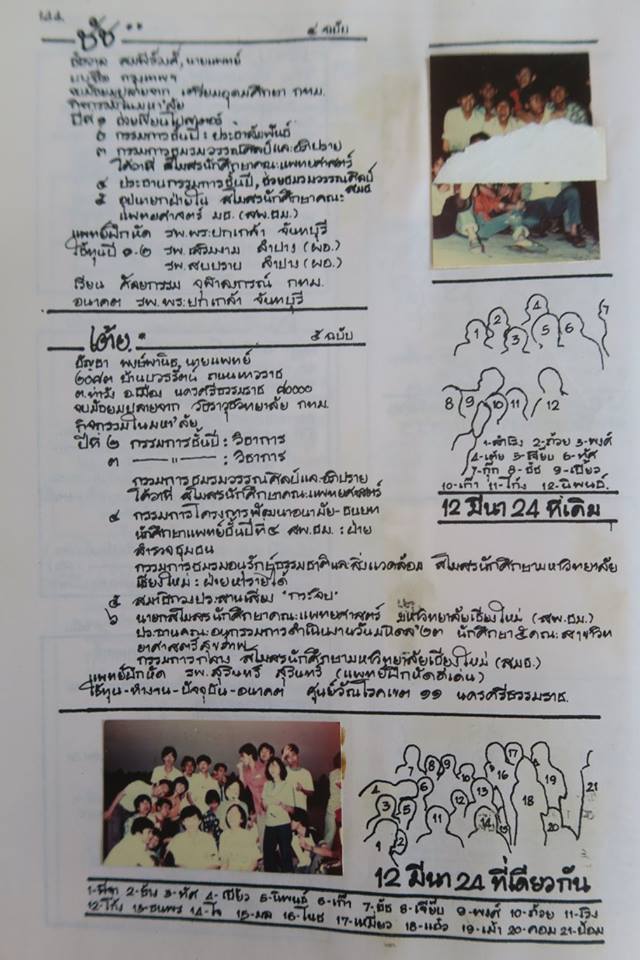 ชัช
๔ ฉบับ
นายแพทย์
กรุงเทพฯ
จบมัธยมปลายจาก เตรียมอุดมศึกษา กทม.
กิจกรรมในมหา'ลัย
ปีที่ ๑
๒ กรรมการชั้นปี : ประชาสัมพันธ์
๓ กรรมการชมรมวรรณศิลป์และอภิปราย
โต้วาที สโมสรนักศึกษาคณะแพทยศาสตร์
๔ ประธานกรรมการชั้นปี, ชมรมวรรณศิลป์ สมช
๕ อุปนายกฝ่ายใน สโมสรนักศึกษาคณะ
แพทยศาสตร์ มช (สพ.ชม.)
แพทย์ฝึกหัด รพ.พระปกเกล้า จันทบุรี
ใช้ทุนปี ๑-๒ รพ.เสริมงาม ลำปาง (ผอ.)
รพ.สบปราบ ลำปาง (ผอ.)
เรียน ศัลยกรรม จุฬาลงกรณ์ กทม.
อนาคต รพ.พระปกเกล้า จันทบุรี
เต้ย
๕ ฉบับ
นายแพทย์
อ.เมือง นครศรีธรรมราช ๘๐๐๐๐
จบมัธยมปลายจาก วชิราวุธวิทยาลัย กทม.
กิจกรรมในมหา'ลัย
ปีที่ ๒ กรรมการชั้นปี : วิชาการ
๓ —"— : วิชาการ
กรรมการชมรมวรรณศิลป์และอภิปราย
โต้วาที สโมสรนักศึกษาคณะแพทยศาสตร์
๔ กรรมการโครงการพัฒนาอนามัย-ชนบท
นักศึกษาแพทย์ชั้นปีที่ ๔ สพ.ชม. : ฝ่าย
สำรวจชุมชน
กรรมการชมรมอนุรักษ์ธรรมชาติและสิ่งแวดล้อม สโมสรนักศึกษามหาวิทยาลัย
เชียงใหม่ : ฝ่ายหารายได้
๕ สมาชิกวงประสานเสียง
๖ นายกสโมสรนักศึกษาคณะแพทยศาสตร์ มหาวิทยาลัยเชียงใหม่ (สพ.ชม.)
ประธานคณะอนุกรรมการดำเนินงานวันมหิดล '๒๓ นักศึกษา ๕ คณะสาขาวิท
ยาศาสตร์สุขภาพ
กรรมการกลาง สโมสรนักศึกษามหาวิทยาลัยเชียงใหม่ (สมช.)
แพทย์ฝึกหัด รพ.สุรินทร์ สุรินทร์ (แพทย์ฝึกหัดดีเด่น)
ใช้ทุน-ทำงาน-ปัจจุบัน-อนาคต ศูนย์วัณโรคเขต ๑๑ นครศรีธรรมราช.
1 2 3 4 5 6 7
8 9 10 11 12
1-สำเริง 2-ถ้วย 3-พงศ์
4-เต้ย 5-เจี๊ยบ 6-ทัศ
7-กุ๊ก 8-ชัช 9-เปียว
10-เก๊า 11-โก๋ง 12-นิพนธ์.
12 มีนา 24 ที่เดิม
1 2 3 4 5 6 7 8 9 10 11 12 13 14 15 16 17 18 19 20 21
12 มีนา 24 ที่เดียวกัน
3-ทัศ 4-เปียว 5-นิพนธ์ 6-เก๊า 7-ชัช 8-เจี๊ยบ 9-พงศ์ 10-ถ้วย
12-โก๋ง 13-ธนพร 14-โจ 15-มล 16-โนช 17-เหมียว 18-แต๋ว 19-เม้า 20-คอม 21-ป้อม